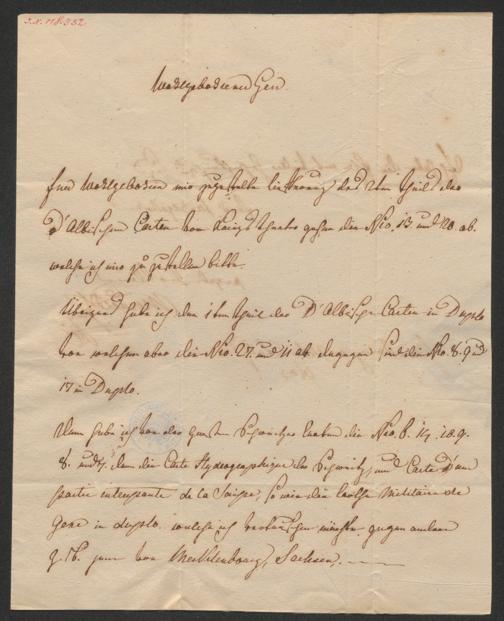 I.N. 118.352
Wohlgebohrner Herr
Euer Wohlgebohrn mir zugestellte Lieferung des 2ten Theils der
D'Albischen Carten vom Kriegs Theatro gehen die Nro. 13 und 20 ab.
welche ich mir zu zustellen bitte.
Übrigens habe ich den 1ten Theil der D'Albischen Carten in Duplo
von welchen aber die Nro. 27. und 11 ab, dagegen sind die Nro. 8. 9 und
17 in Duplo.
Dann habe ich von der Schweitzer Carten die Nro. 8. 14. 10. 9.
8. dann die Carte Hydrographique der Schweitz, und Carte d'une
partie interessante de la Suisse, so wie die Militaire de
in duplo. welche ich gegen andere
z. B. von Mecklenbourg, Sachsen,